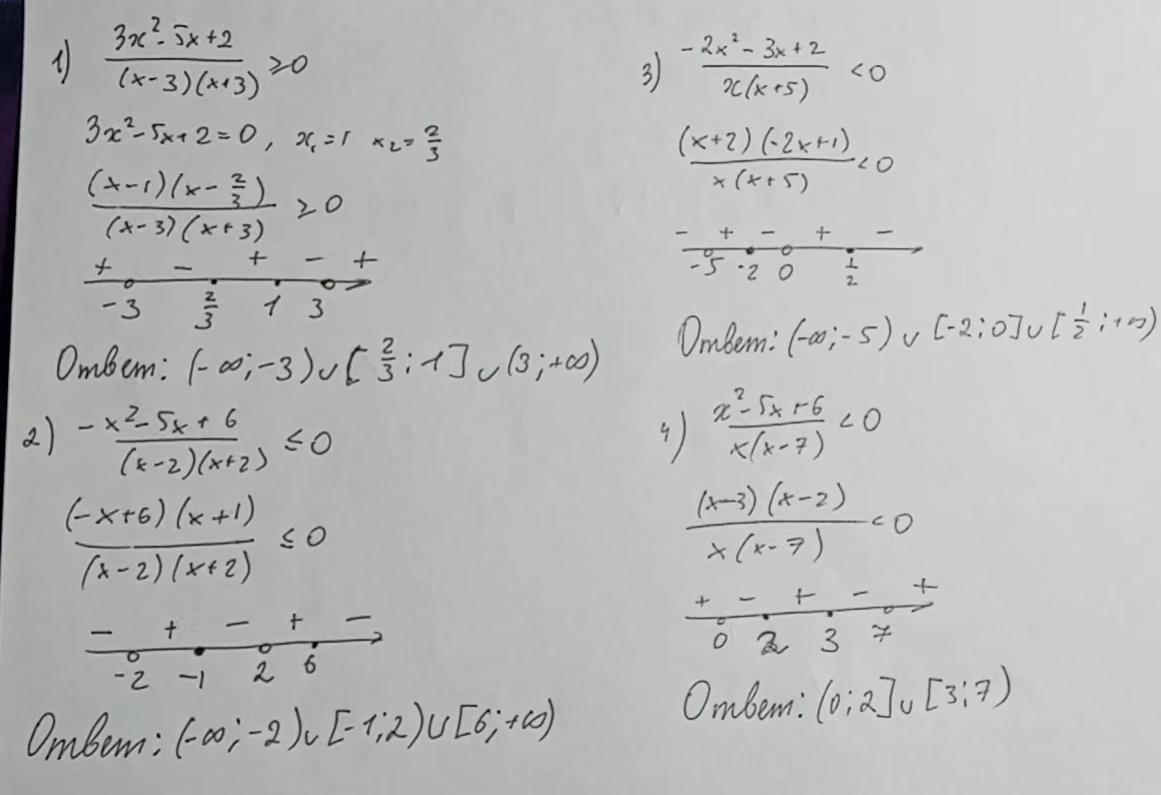 1) (3x²-5x+2)/((x-3)(x+3)) ≥0
3x²-5x+2=0, x₁=1 x₂=2/3
((x-1)(x-2/3))/((x-3)(x+3)) ≥0
+ - + - +
-3 2/3 1 3
Ответ: (-∞;-3)∪[2/3;1]∪(3;+∞)
2) (-x²-5x+6)/((x-2)(x+2)) ≤0
((-x+6)(x+1))/((x-2)(x+2)) ≤0
- + - + -
-2 -1 2 6
Ответ: (-∞;-2)∪[-1;2)∪[6;+∞)
3) (-2x²-3x+2)/(x(x+5)) <0
((x+2)(-2x+1))/(x(x+5)) <0
- + - + -
-5 -2 0 1/2
Ответ: (-∞;-5)∪[-2;0]∪[1/2;+∞)
4) (x²-5x+6)/(x(x-7)) <0
((x-3)(x-2))/(x(x-7)) <0
+ - + - +
0 2 3 7
Ответ: (0;2]∪[3;7)